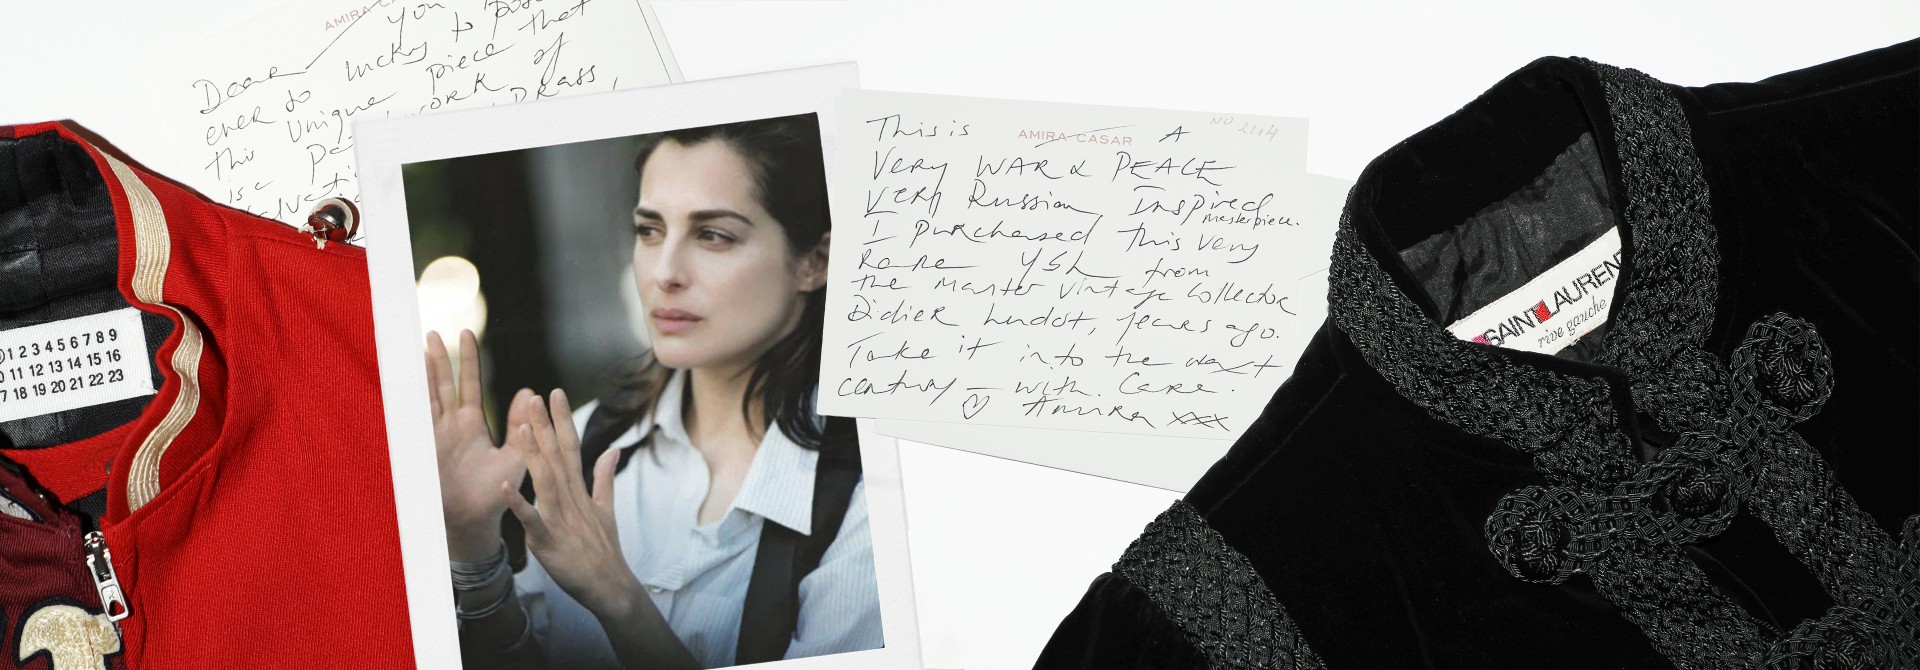 AMIRA CA
you
Dear
ever so lucky to
this unique piece that
is of
DRASS,
1 2 3 4 5 6 7 8 9
10 11 12 13 14 15 16
17 18 19 20 21 22 23
This is AMIRA CASAR A
No 2114
Very WAR & PEACE
Very Russian, Inspired
masterpiece.
I purchased this very
Rare YSL from
the master vintage collector
Didier Ludot, years ago.
Take it into the next
century – with Care.
♡ Amira xxx
SAINT LAURENT
rive gauche